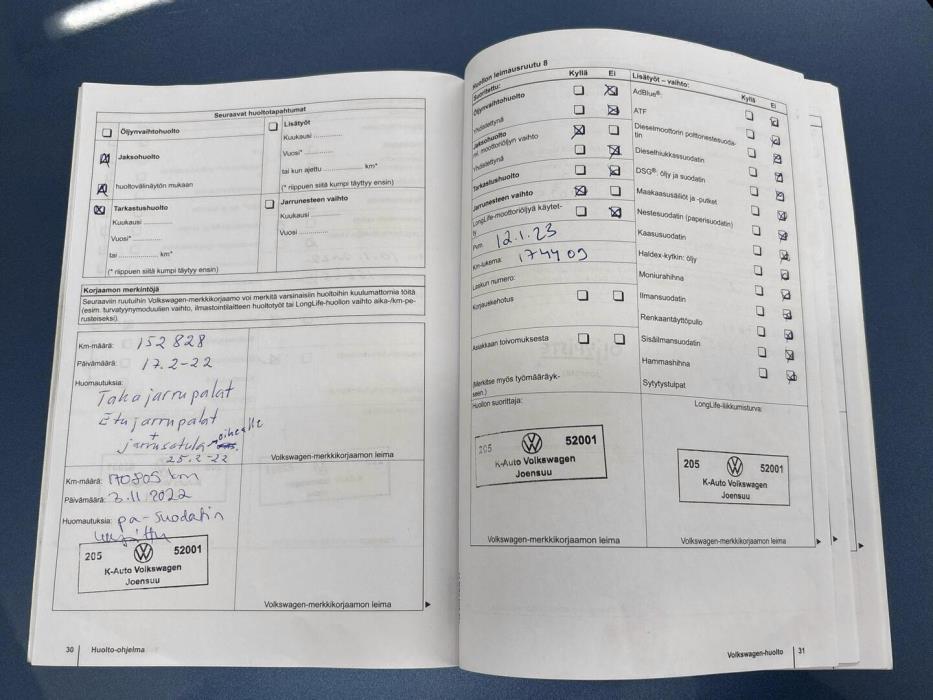 Seuraavat huoltotapahtumat
Öljynvaihtohuolto
Jaksohuolto
huoltovälinäytön mukaan
Tarkastushuolto
Kuukausi ..............
Vuosi* ..............
tai .............. km*
(* riippuen siitä kumpi täytyy ensin)
Lisätyöt
Kuukausi ..............
Vuosi* ..............
tai kun ajettu .............. km*
(* riippuen siitä kumpi täytyy ensin)
Jarrunesteen vaihto
Kuukausi ..............
Vuosi ..............
Korjaamon merkintöjä
Seuraaviin ruutuihin Volkswagen-merkkikorjaamo voi merkitä varsinaisiin huoltoihin kuulumattomia töitä
(esim. turvatyynymoduulien vaihto, ilmastointilaitteen huoltotyöt tai LongLife-huollon vaihto aika-/km-pe-
rusteiseksi).
Km-määrä: 152 828
Päivämäärä: 17.2-22
Huomautuksia:
Taka jarrupalat
Etujarrupalat
+
jarrusatula oikealle
25.2-22
Volkswagen-merkkikorjaamon leima
Km-määrä: 170805 km
Päivämäärä: 3.11.2022
Huomautuksia: pa-suodatin
205 52001
K-Auto Volkswagen
Joensuu
Volkswagen-merkkikorjaamon leima
30 Huolto-ohjelma
Huollon leimausruutu 8
Suoritettu: Kyllä Ei
Öljynvaihtohuolto
Yhdistettynä
Jaksohuolto
ml. moottoriöljyn vaihto
Yhdistettynä
Tarkastushuolto
Jarrunesteen vaihto
LongLife-moottoriöljyä käytet-
ty
Pvm. 12.1.23
Km-lukema: 174409
Laskun numero:
Korjauskehotus
Asiakkaan toivomuksesta
(Merkitse myös työmääräyk-
seen.)
Huollon suorittaja:
205 52001
K-Auto Volkswagen
Joensuu
Volkswagen-merkkikorjaamon leima
Lisätyöt – vaihto: Kyllä Ei
AdBlue®:
ATF
Dieselmoottorin polttonestesuoda-
tin
Dieselhiukkassuodatin
DSG®: öljy ja suodatin
Maakaasusäiliöt ja -putket
Nestesuodatin (paperisuodatin)
Kaasusuodatin
Haldex-kytkin: öljy
Moniurahihna
Ilmansuodatin
Renkaantäyttöpullo
Sisäilmansuodatin
Hammashihna
Sytytystulpat
LongLife-liikkumisturva:
205 52001
K-Auto Volkswagen
Joensuu
Volkswagen-merkkikorjaamon leima
Volkswagen-huolto 31